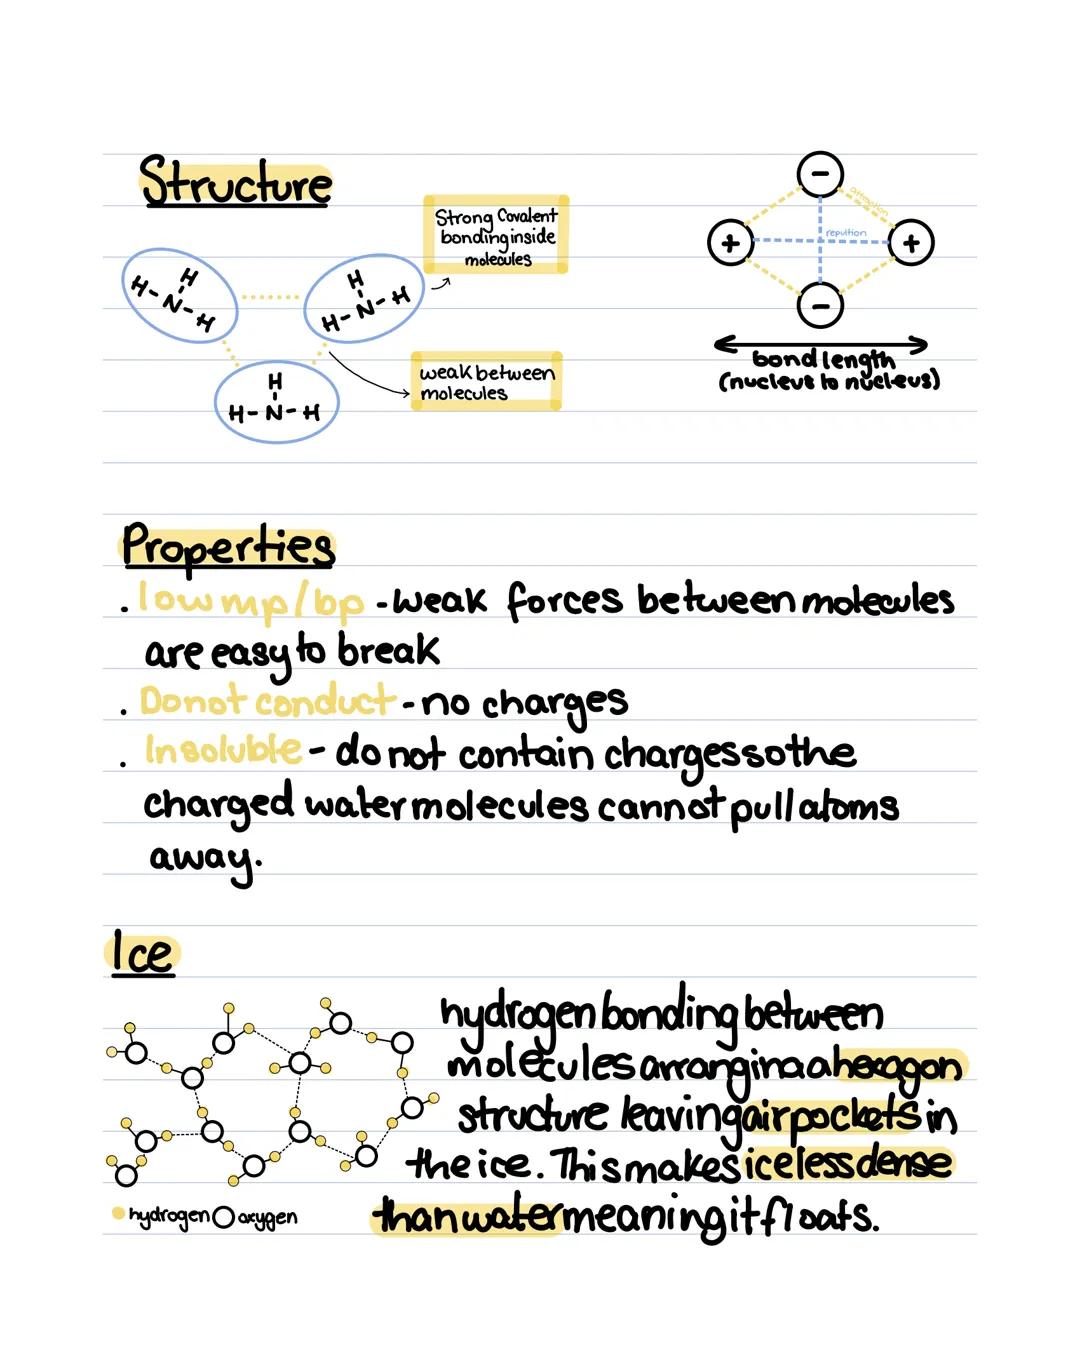 Structure
Strong Covalent
bonding inside
molecules
H
H-N-H
H
H-N-H
H
H-N-H
weak between
molecules
attraction
repultion
−
+
+
−
bond length
(nucleus to nucleus)
Properties
. low mp/bp - weak forces between molecules
are easy to break
. Do not conduct - no charges
. Insoluble - do not contain charges so the
charged water molecules cannot pull atoms
away.
Ice
hydrogen bonding between
molecules arranging in a a hexagon
structure leaving air pockets in
the ice. This makes ice less dense
than water meaning it floats.
hydrogen oxygen